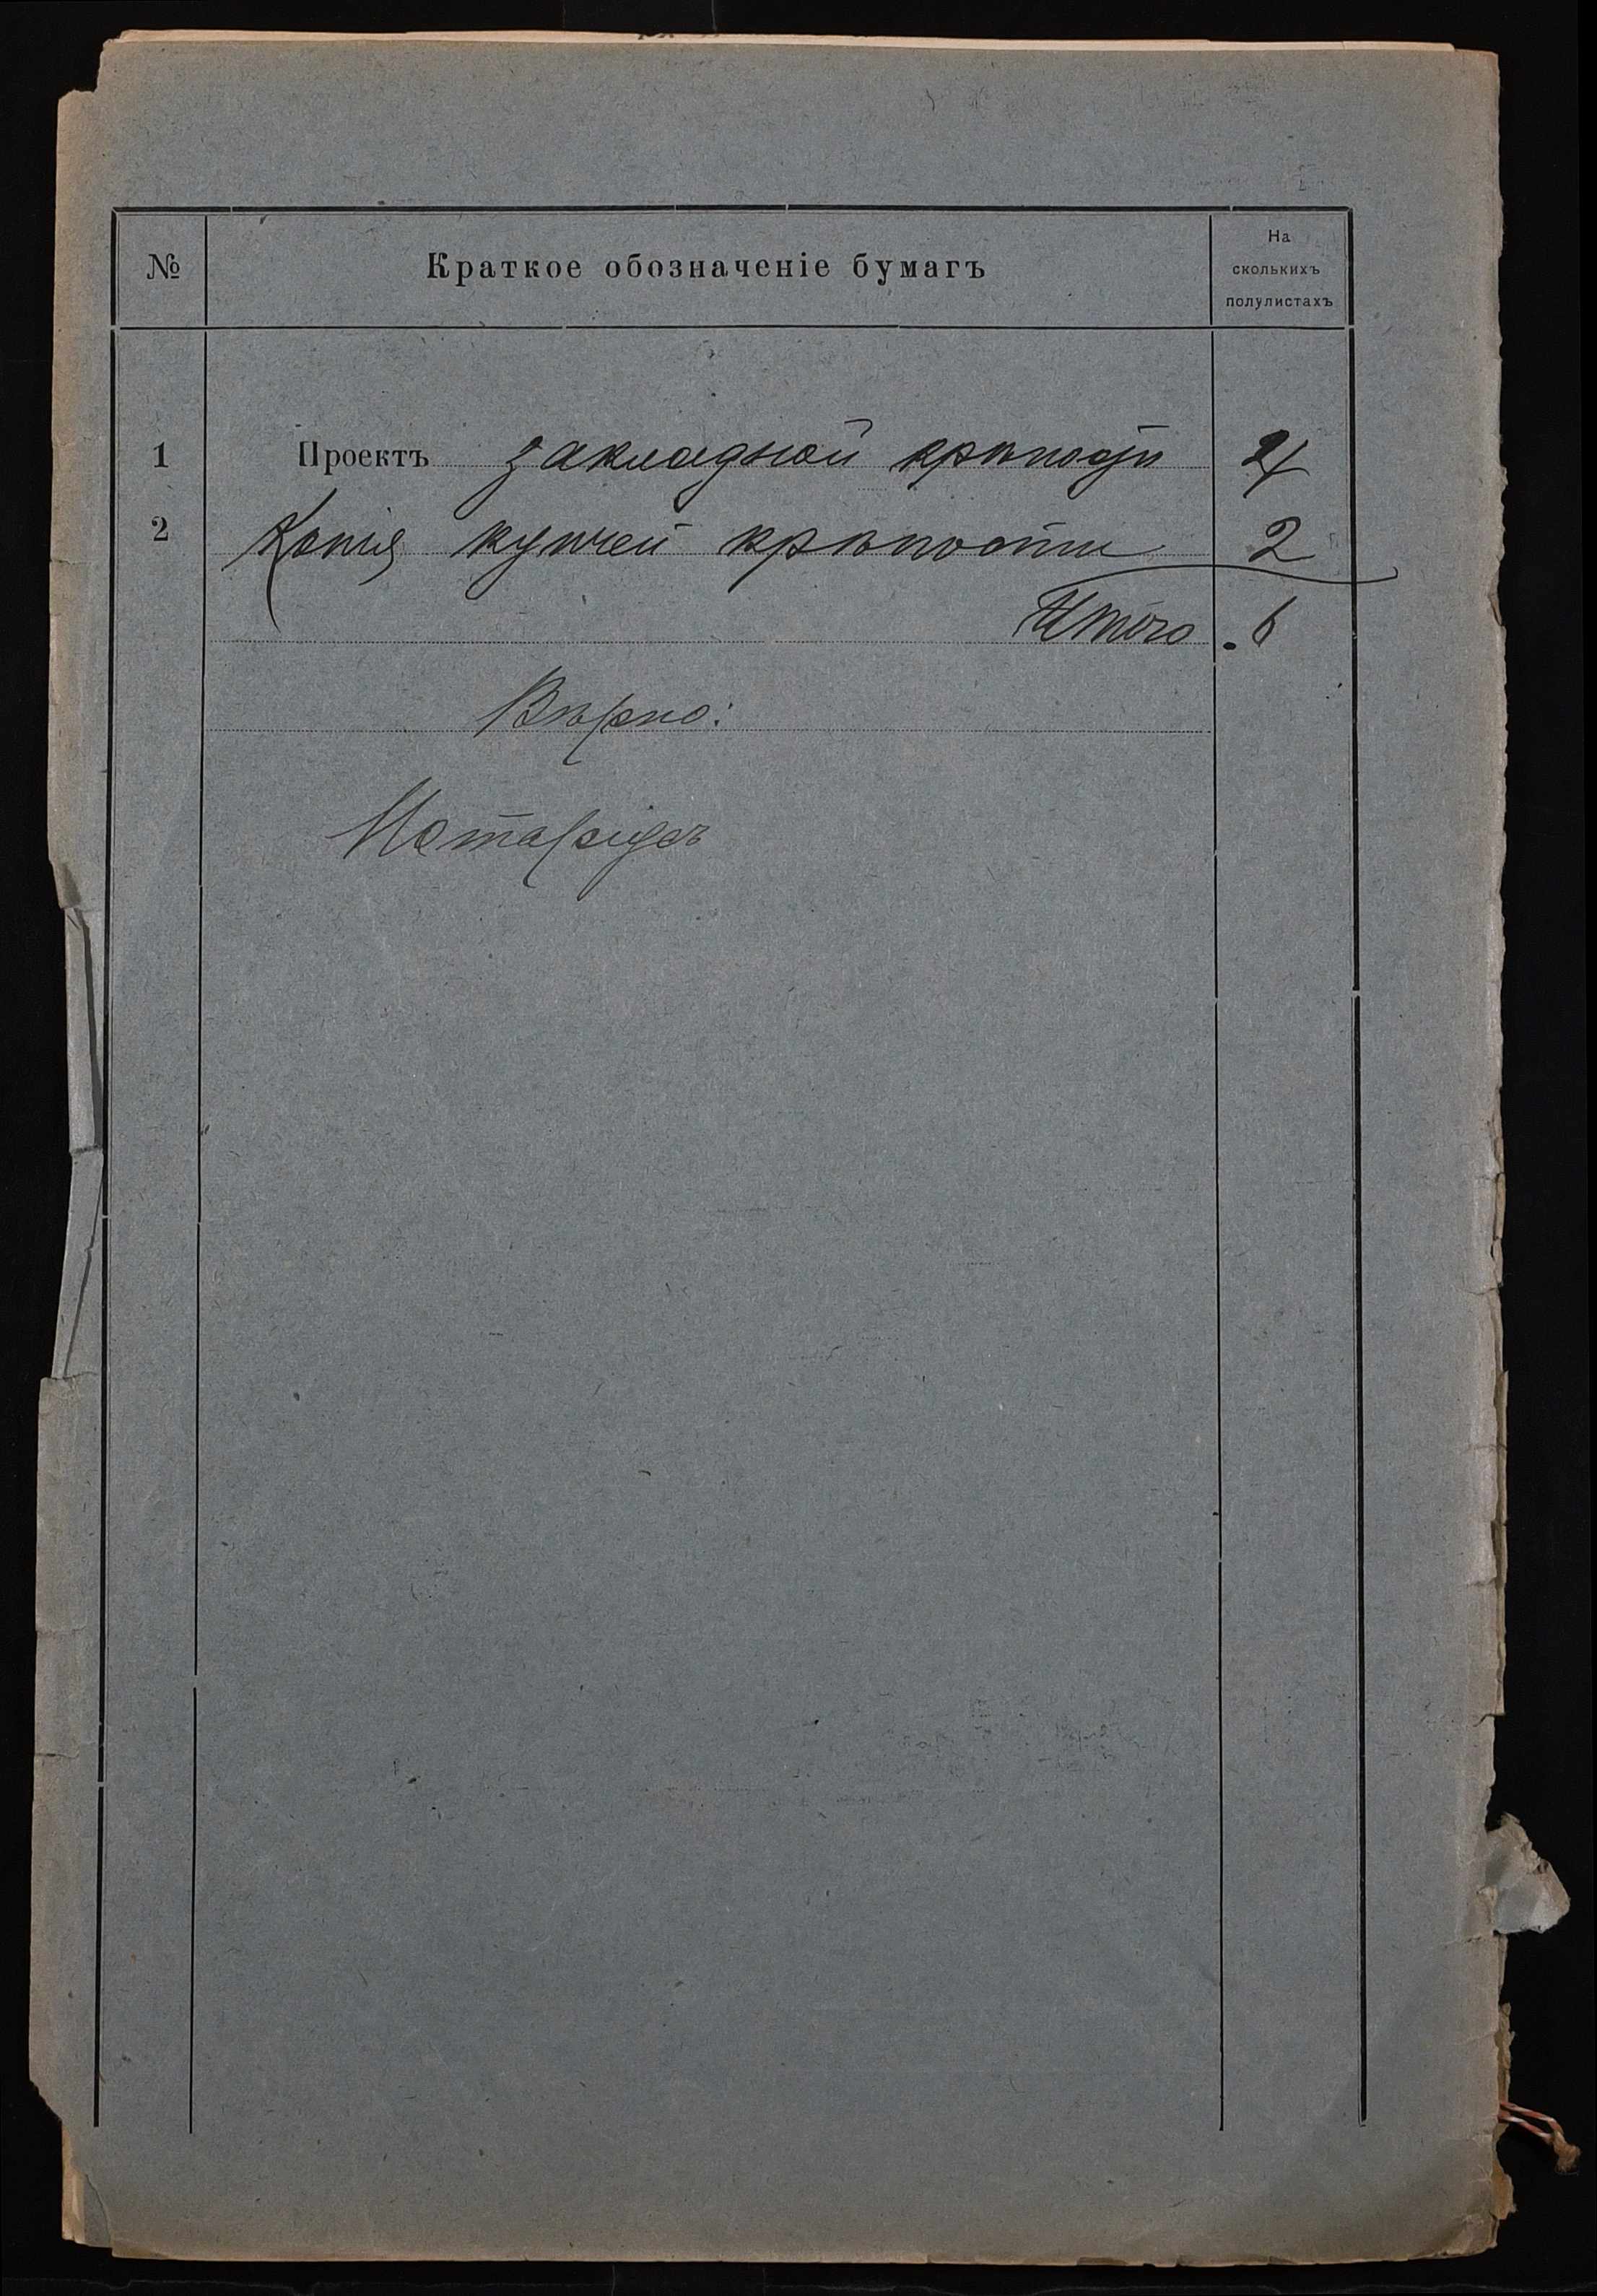 № Краткое обозначеніе бумагъ На
сколькихъ
полулистахъ
1 Проектъ закладной крѣпости 4
2 Копія купчей крѣпости 2
Итого 6
Вѣрно:
Нотаріусъ